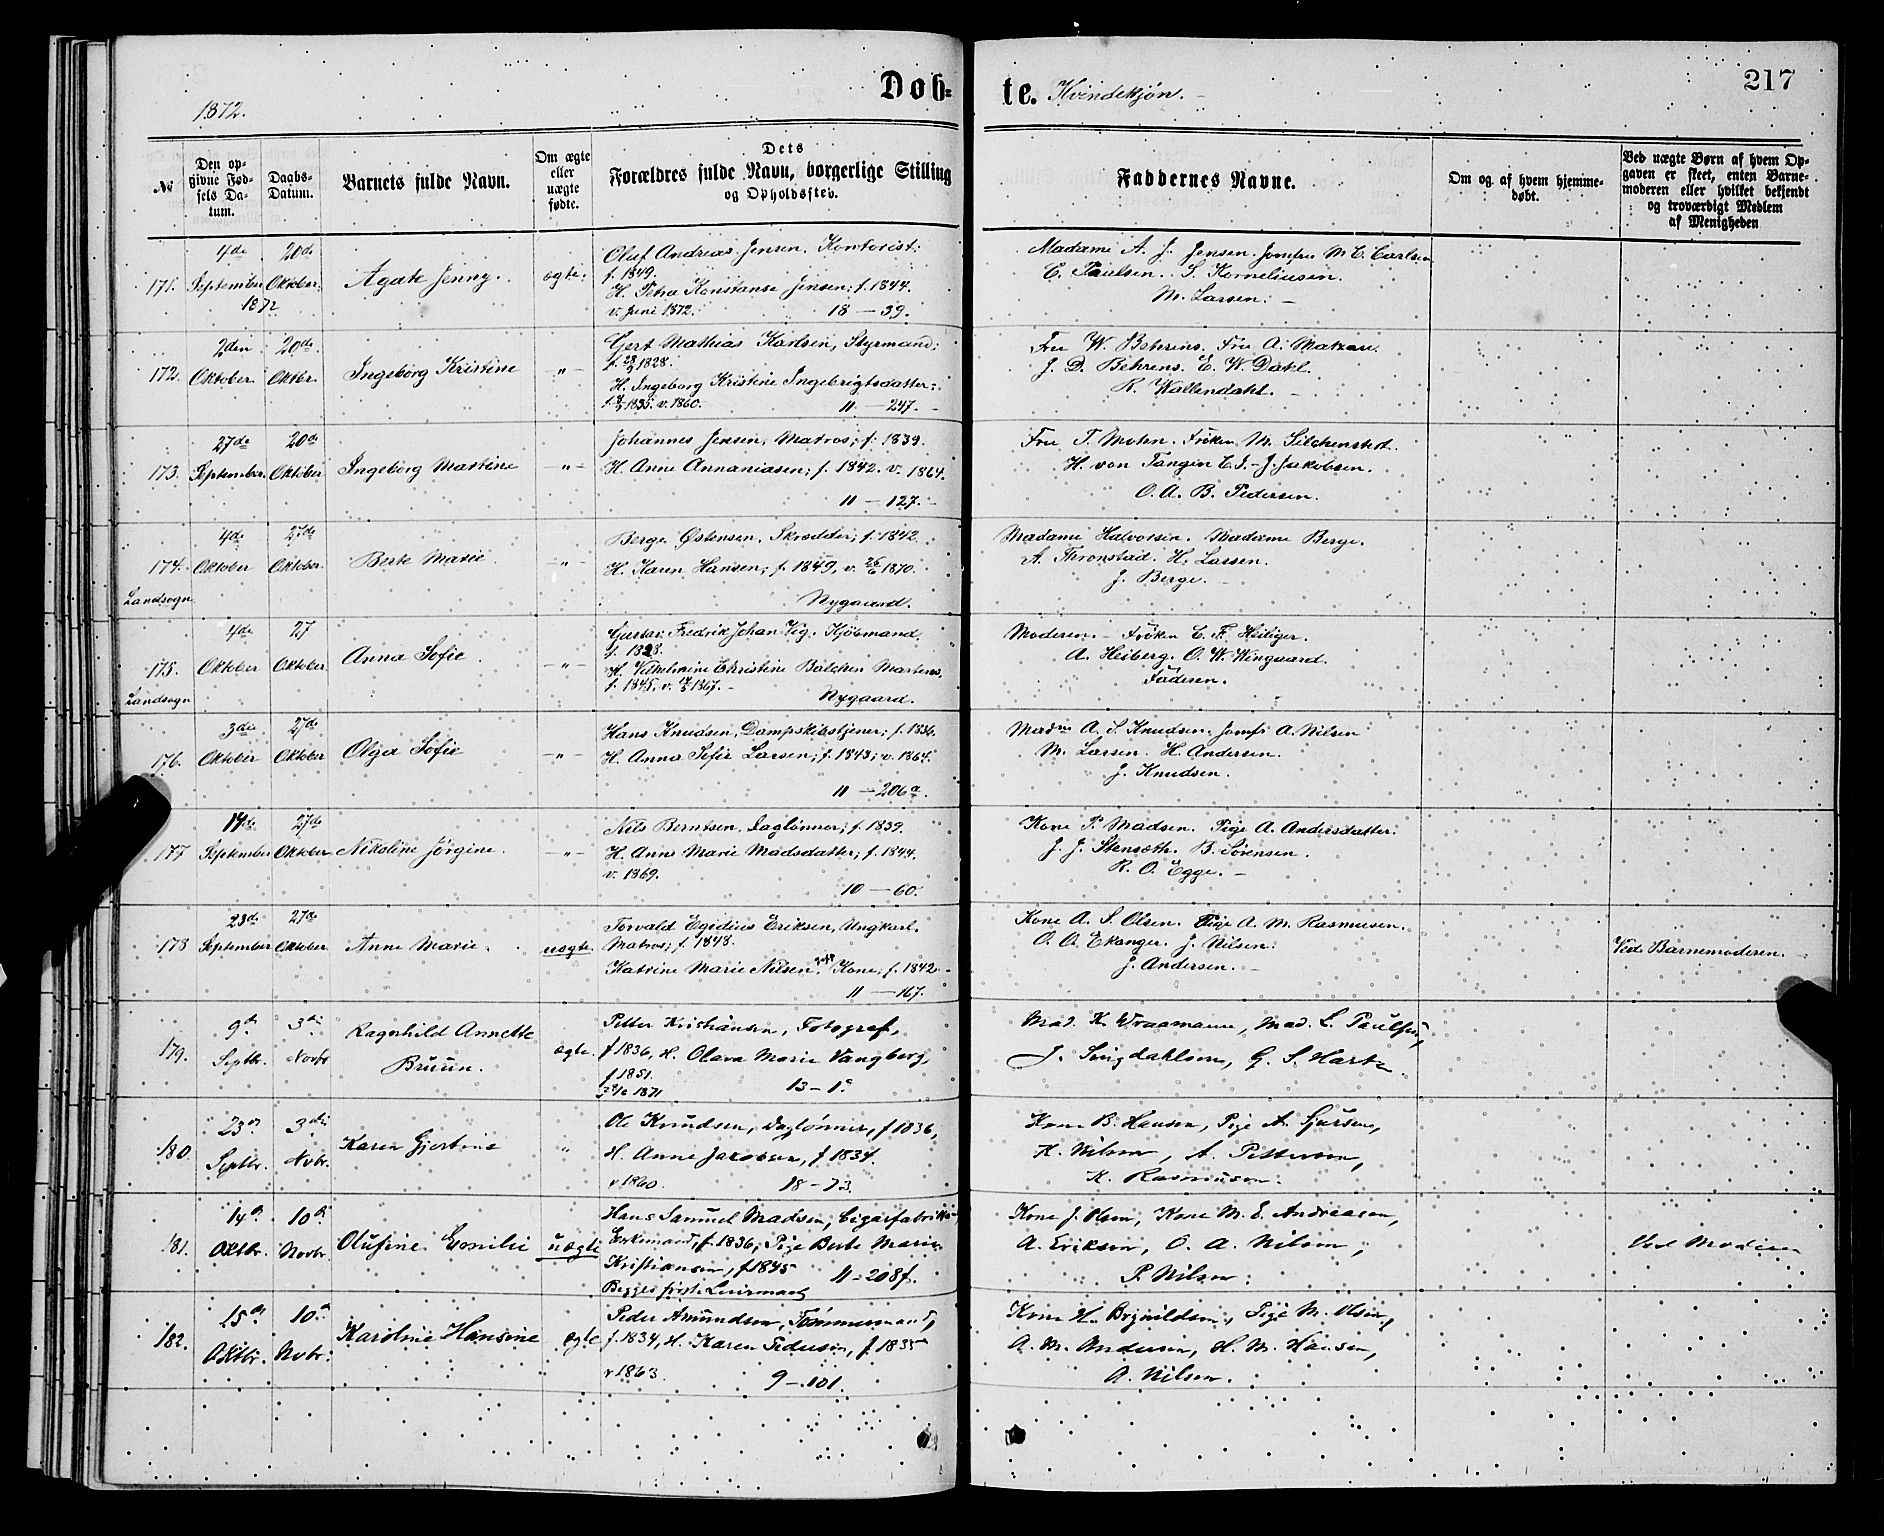 1872.
Døb-
te. Kvindekjøn.
217
№
Den op-
givne Fød-
sels Da-
tum.
Daabs-
Datum.
Barnets fulde Navn.
Om ægte
eller
uægte
fødte.
Dets
Forældres fulde Navn, borgerlige Stilling
og Opholdssted.
Faddernes Navne.
Om og af hvem hjemme-
døbt.
Ved uægte Børn af hvem Op-
gaven er skeet, enten Barne-
moderen eller hvilket bekjendt
og troværdigt Medlem
af Menigheden
171. 4de September 1872
20de Oktober.
Agate Jenny.
ægte.
Oluf Andreas Jensen. Kontorist;
f. 1849.
H. Petra Konstanse Jensen; f. 1844.
v. Juni 1872. 18 — 39.
Madame A. J. Jensen. Jomfru M. C. Carlsen
C. Paulsen. S. Korneliusen.
M. Larsen. —
172. 2den Oktober.
20de Oktbr.
Ingeborg Kristine
— „ —
Gert Mathias Karlsen, Styrmand;
1828.
H. Ingeborg Kristine Ingebrigtsdatter;
1835. v. 1860. 11 — 247. —
Fru W. Behrens. Fru A.
J. D. Behrens. E. W. Dahl.
R. Wallendahl. —
173. 27de September.
20de Oktober
Ingeborg Martine
— „ —
Johannes Jensen, Matros; f. 1839.
H. Anne Annaniasen; f. 1842. v. 1864.
11 — 127. —
Fru T. Mohn. Frøken M.
H. von Tangen J. Jakobsen.
O. A. B. Pedersen.
174. Landsogn
4de Oktober
27de Oktober.
Berte Marie.
— „ —
Berge Østensen. Skrædder; f. 1842
H. Karen Hansen; f. 1849, v. 26/6 1870.
Nygaard.
Madame Halvorsen. Madame Berge.
A. Thronstad. H. Lassen.
J. Berge. —
175. Landsogn
4de Oktober
27 Oktober.
Anna Sofie.
— „ —
Gustav Fredrik Johan Kjøbmand.
f. 1828.
H. Vilhelmine Christine Martens,
f. 1845. v. 1867. —
Nygaard.
Moderen. — Frøken C. F. Heiliger.
A. Heiberg. O. W. Wingaard.
Faderen.
176. 3die Oktober
27de Oktober
Olga Sofie
— „ —
Hans Knudsen, Dampskibstjener; f. 1836.
H. Anna Sofie Larsen; f. 1843; v. 1864.
11 — 206a.
Madm A. S. Knudsen. Jomf. A. Nilsen
M. Larsen. H. Andersen.
J. Knudsen.
177 14de September
27de Oktober
Nikoline Jørgine.
— „ —
Nils Berntsen. Daglønner; f. 1839.
H. Anne Marie Madsdatter; f. 1844.
v. 1869.
10 — 60.
Kone P. Madsen. Pige A. Andersdatter.
J. J. Stensæth. B. Sørensen.
R. O. Egge. —
178 23de September
27de Oktober.
Anne Marie.
uægte.
Torvald Egidius Eriksen, Ungkarl.
Matros; f. 1848.
Katrine Marie Nilsen. Kone; f. 1842. —
11 — 167.
Kone A. S. Olsen. Pige A. M. Rasmusen.
O. A. Ekanger. J. Nilsen.
J. Andersen. —
Ved Barnemoderen. —
179. 9de Septbr.
3die Novbr
Ragnhild Annette
Bruun.
ægte.
Petter Kristiansen, Fotograf,
f 1836, H. Olava Marie Vangberg,
f 1851.
1871 13 — 1c
Mad. K. Wraamann, Mad. L. Paulsen,
J. G. S. Hartz.
180. 23de Septbr.
3die Novbr.
Karen Gjertine
„
Ole Knudsen, Daglønner, f 1836,
H. Anne Jacobsen, f 1834.
v 1860. 18 — 73.
Kone B. Hansen, Pige A. Sjursen,
K. Nilsen, A. Pettersen,
K. Rasmusen.
181. 14de Oktbr.
10de Novbr.
Olufine Emilie
uægte
Hans Samuel Madsen, Cigarfabrikør
Enkemand, f. 1836, Pige Berte Marie
Kristiansen, f 1845 11 — 208f.
Begges første Leiermaal
Kone J. Olsen, Kone M. E. Andreasen,
A. Eriksen, O. A. Nilsen,
P. Nilsen.
Ved Moderen
182. 15de Oktbr.
10de Novbr.
Karoline Hansine
ægte
Peder Amundsen, Tømmermand,
f. 1834, H. Karen Pedersen, f 1835
v 1863. 9 — 101.
Kone H. Brynildsen, Pige M. Olsen,
A. M. Andersen, H. M. Hansen,
A. Nilsen.